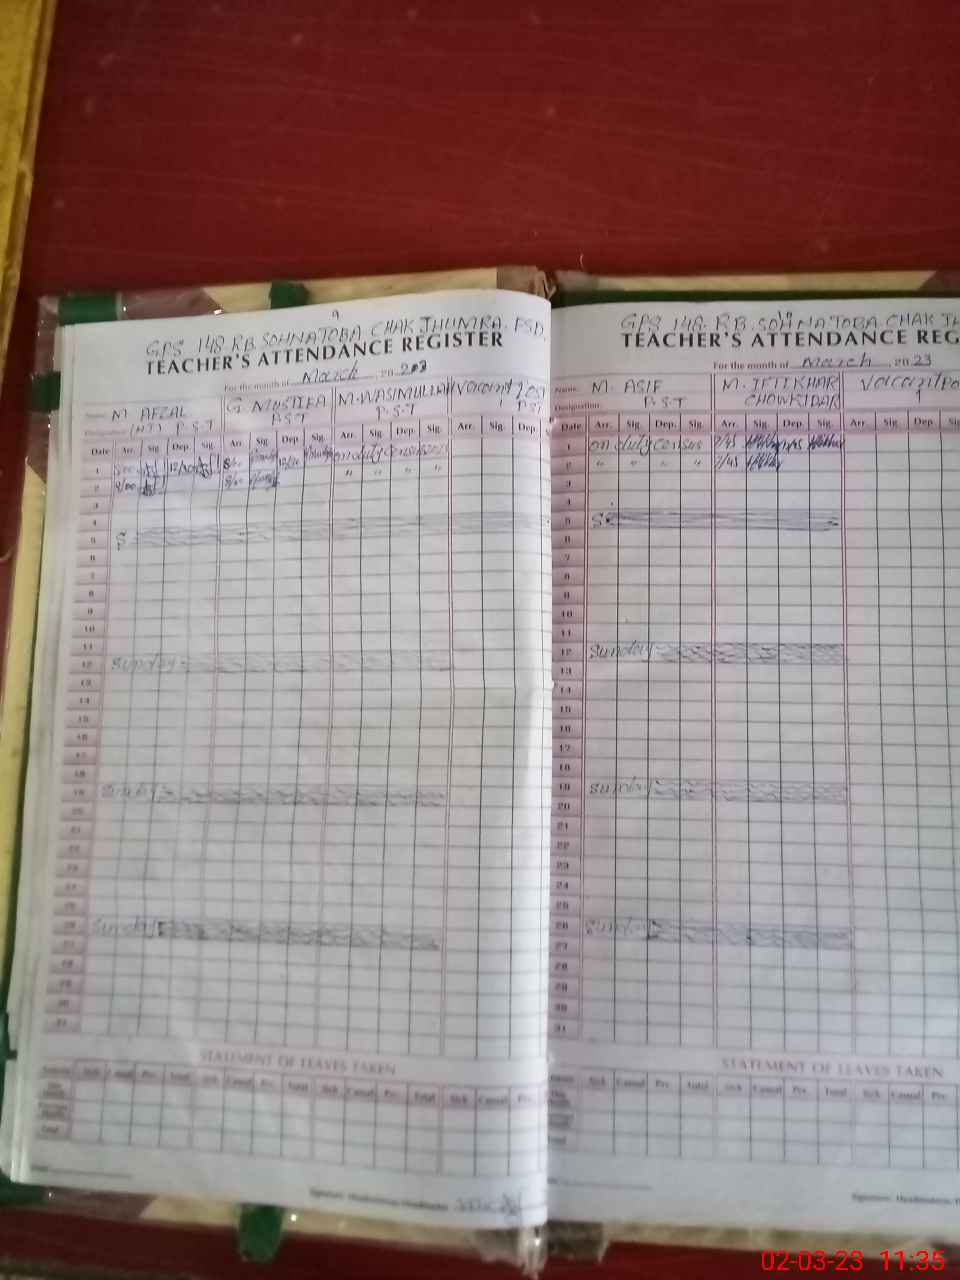 9
GPS 148 R.B. SOHNATOBA CHAK JHUMRA. FSD.
TEACHER'S ATTENDANCE REGISTER
For the month of March 20
Name M. AFZAL G. MUSTTFA M. WASIMULLAH
Designation (HT) P.S.T P.S.T P.S.T PST
Date Arr. Sig. Dep. Sig. Arr. Sig. Dep. Sig. Arr. Sig. Dep. Sig. Arr. Sig. Dep
1 8/00 on duty Census
2 8/00 8/00 " " " "
3
4
5 S
6
7
8
9
10
11
12 Sunday
13
14
15
16
17
18
19 Sunday
20
21
22
23
24
25
26 Sunday
27
28
29
30
31
STATEMENT OF LEAVES TAKEN
Sick Casual Prv. Total Sick Casual Prv. Total Sick Casual Prv. Total Sick Casual Prv.
Total
10
GPS 148. R.B. SOHNATOBA. CHAK
TEACHER'S ATTENDANCE REG
For the month of March 2023
Name M. ASIF M. IFTIKHAR
Designation P.S.T CHOWKIDAR 1
Date Arr. Sig. Dep. Sig. Arr. Sig. Dep. Sig. Arr. Sig. Dep.
1 on duty census 7/45
2 " " " " 7/45
3
4
5 S
6
7
8
9
10
11
12 Sunday
13
14
15
16
17
18
19 Sunday
20
21
22
23
24
25
26 Sunday
27
28
29
30
31
STATEMENT OF LEAVES TAKEN
Sick Casual Prv. Total Sick Casual Prv. Total Sick Casual Prv.
02-03-23 11:35